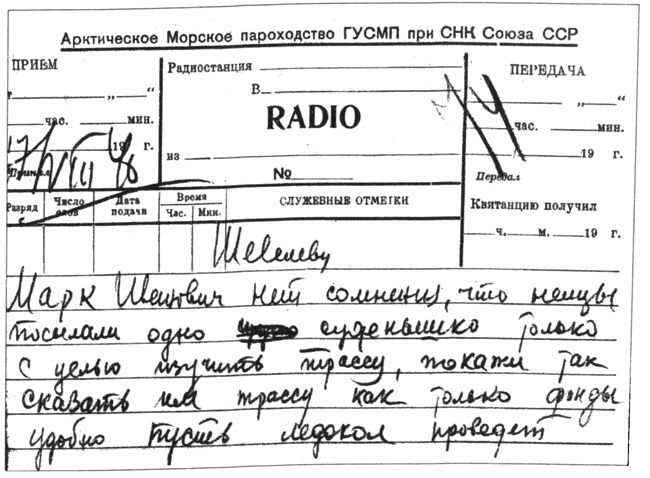 Арктическое Морское пароходство ГУСМП при СНК Союза ССР
ПРИЕМ
Радиостанция
ПЕРЕДАЧА
„ “
В
„ “
час. мин.
RADIO
час. мин.
17/VIII 40
19 г.
из
19 г.
Принял
№
Передал
Разряд
Число слов
Дата подачи
Время
Час. Мин.
СЛУЖЕБНЫЕ ОТМЕТКИ
Квитанцию получил
ч. м. 19 г.
Шевелеву
Марк Иванович нет сомнения, что немцы
посылали одно суденышко только
с целью изучить трассу, покажи так
сказать им трассу как только
удобно пусть ледокол проведет